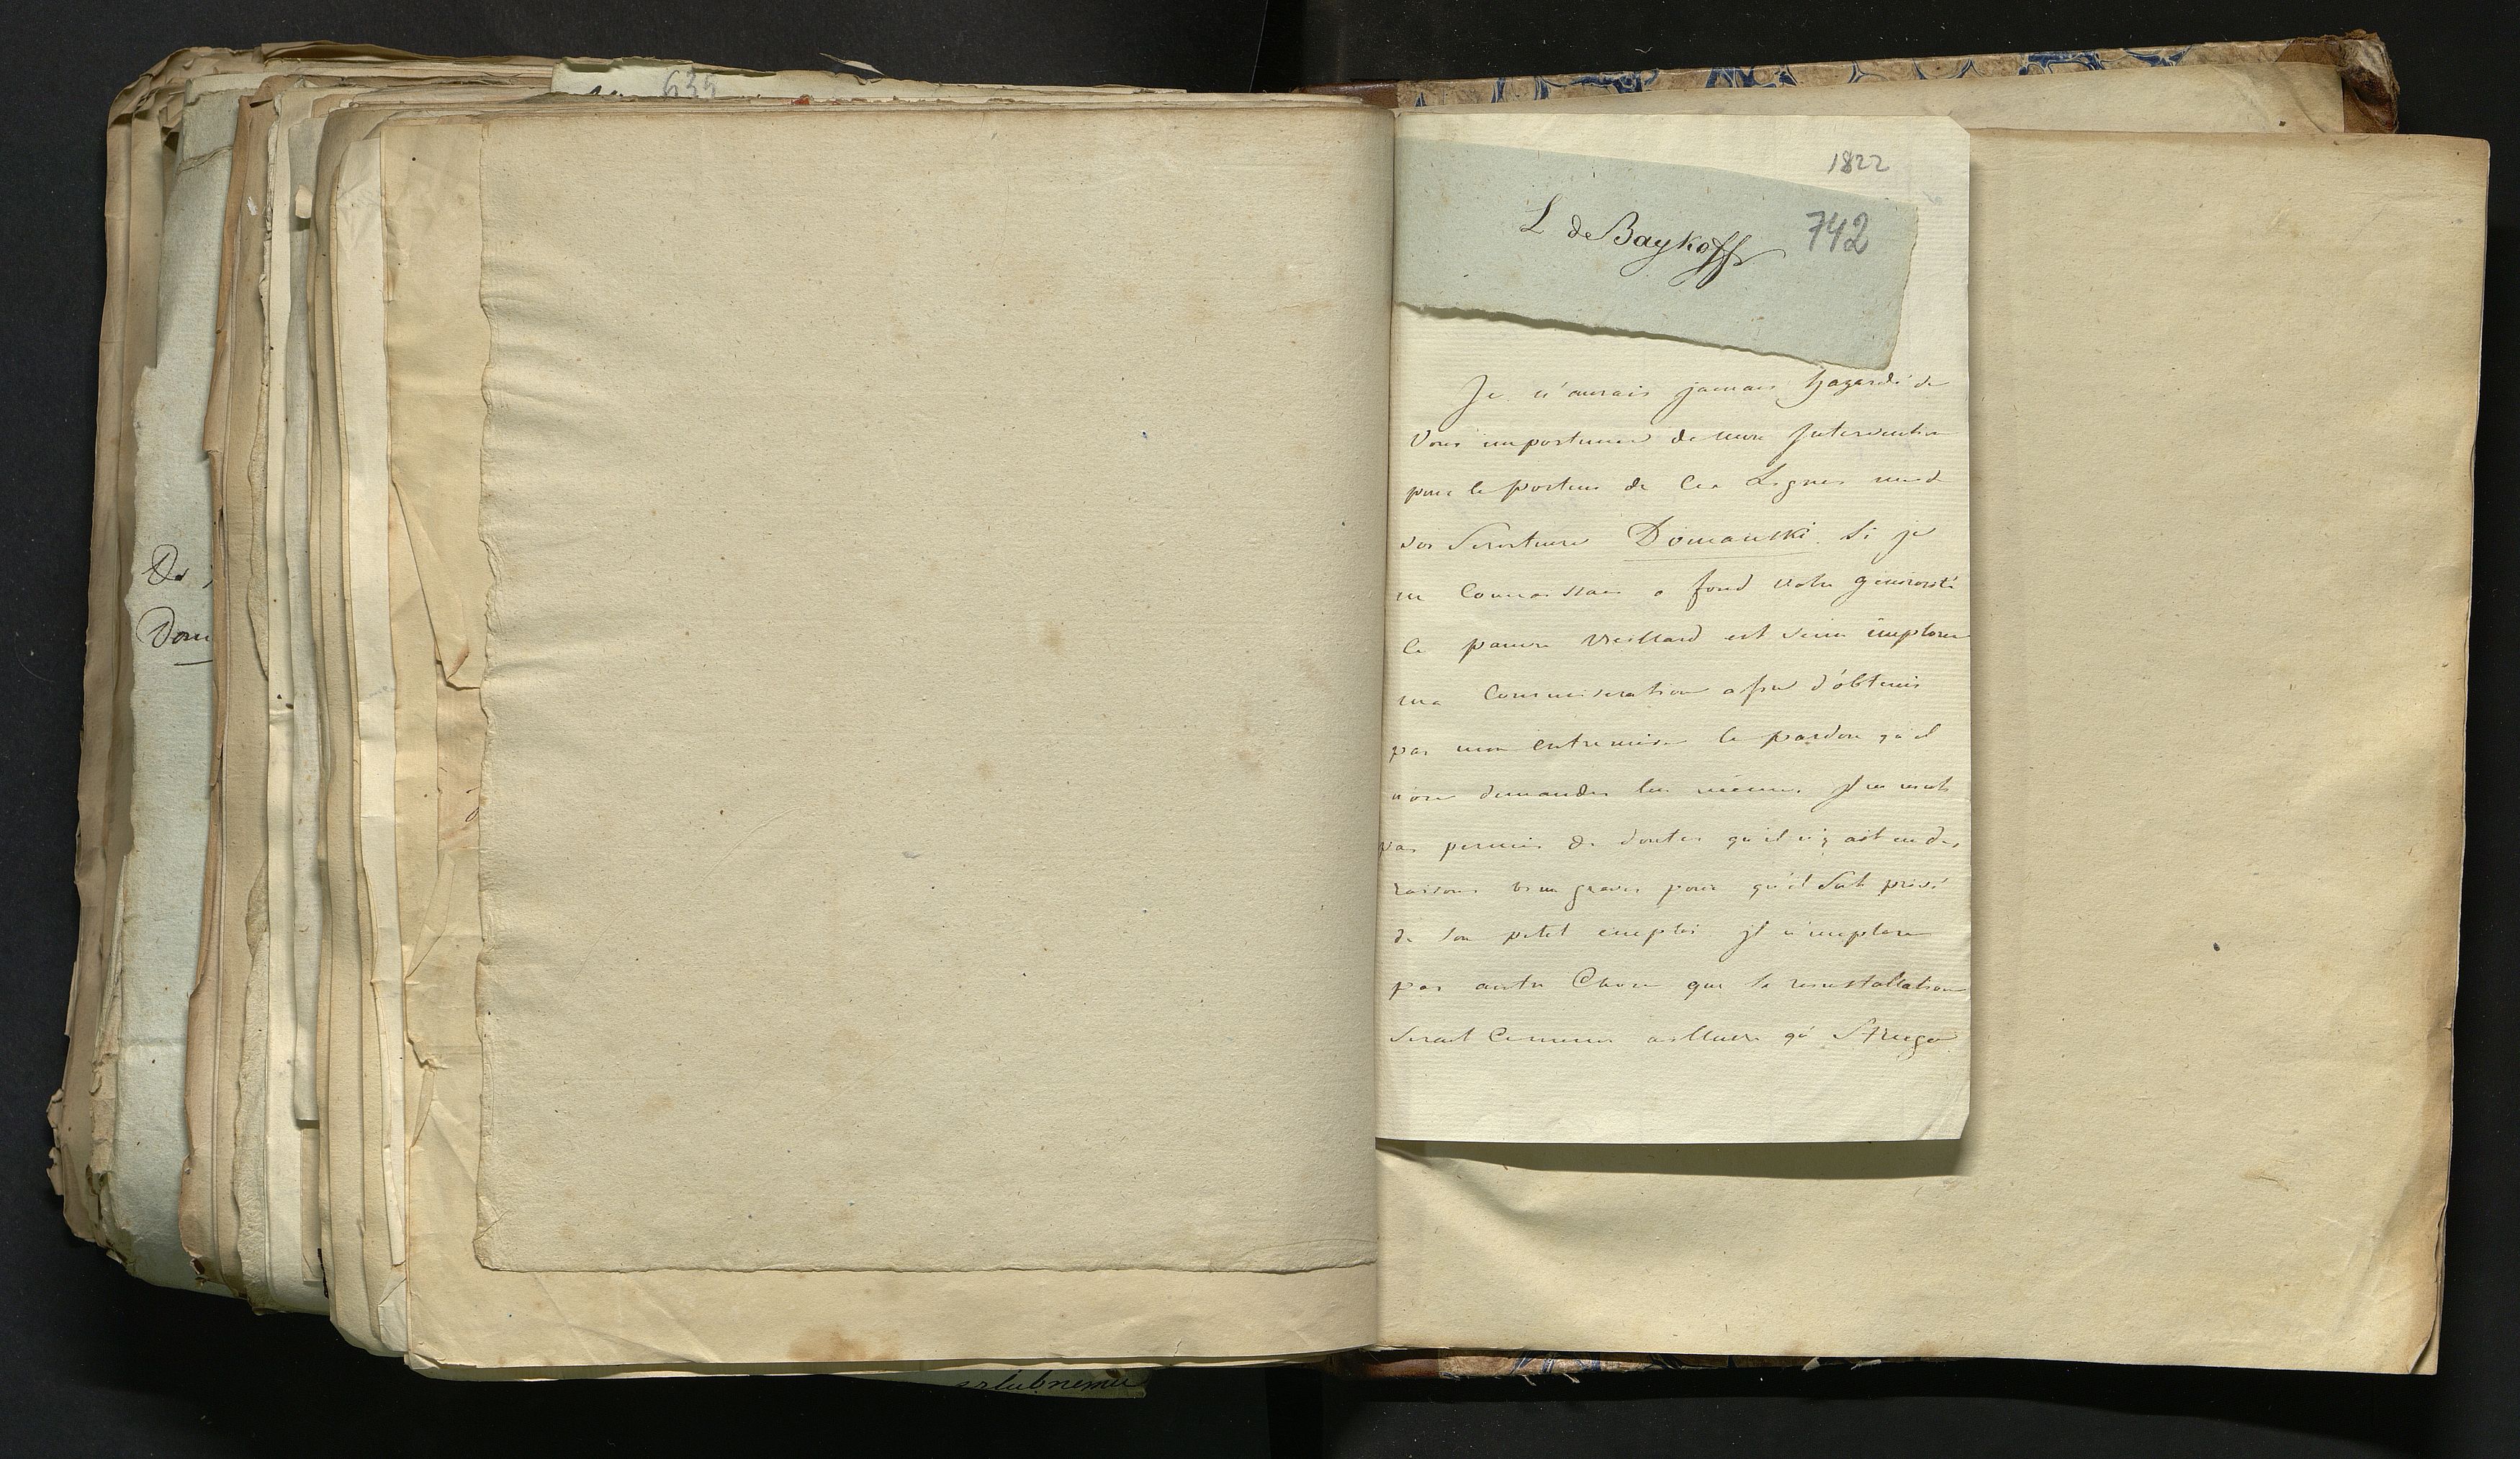 635
De
Dom
1822
L de Baykoff 742
Je n'aurais jamais hazardé de
Vous importuner de mon Intervention
pour le porteur de Ces Lignes
Domanski. Si je
ne Connoissais a fond votre generosité
Ce pauvre Vieillard est venu implorer
ma Commiseration afin d'obtenir
par mon entremise le pardon qu'il
n'ose demander lui meme. Il ne m'est
pas permis de douter qu'il n'y ait eu des
raisons bien graves pour qu'il Soit privé
de Son petit emploi. Il n'implore
pas autre Chose que Sa reinstallation
Serait Comme ailleurs qu'
szlubnemu